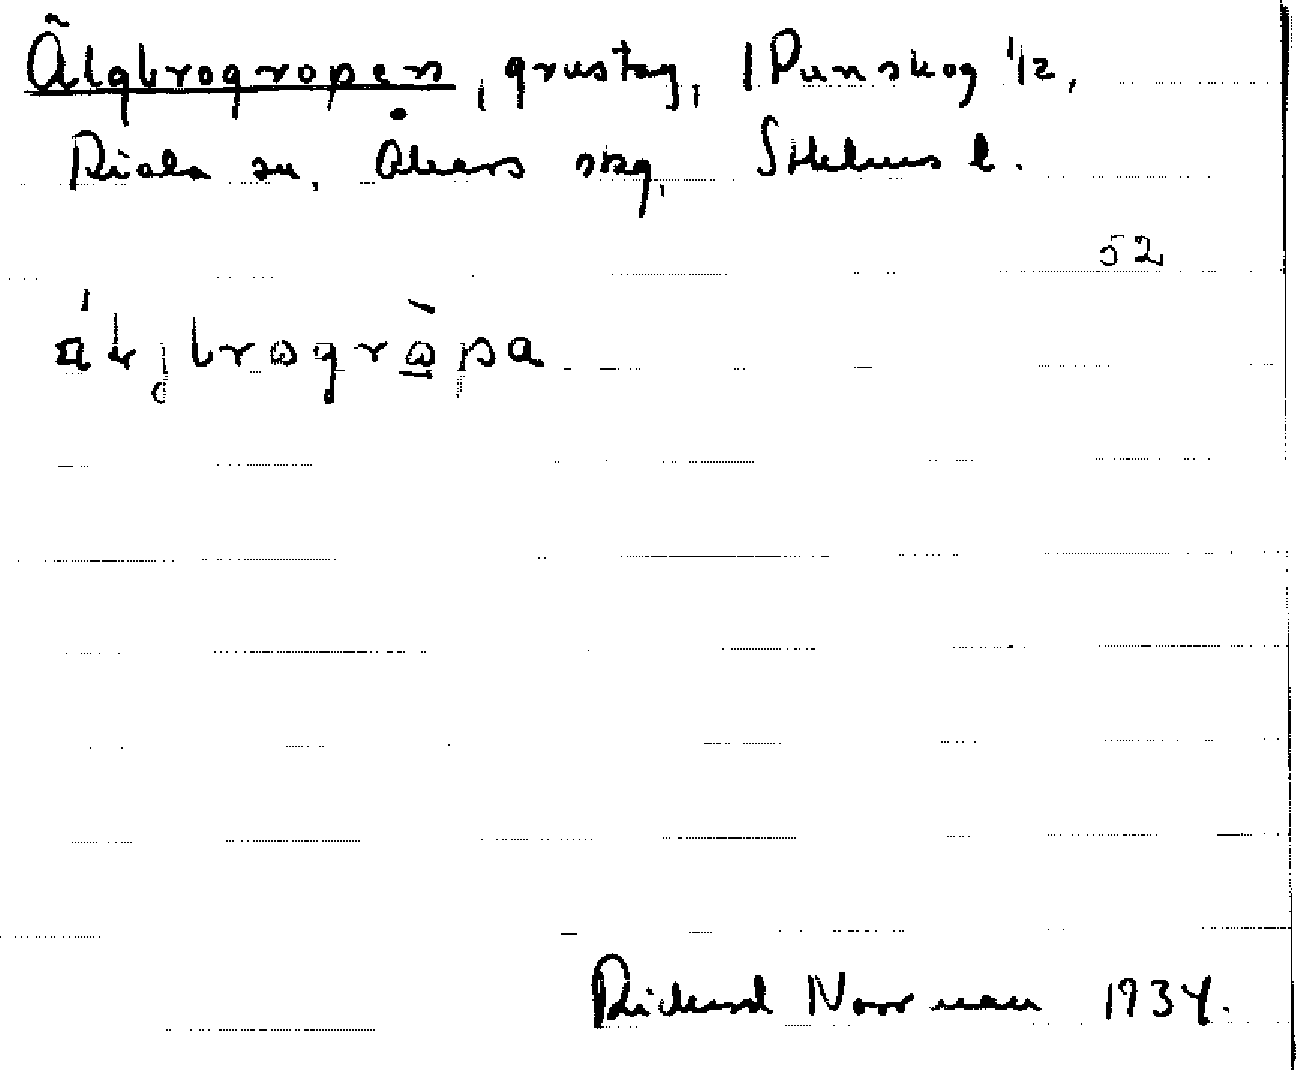 Älgbrogropen, grustag, 1 Punskog 1/2,
Riala sn, Åkers skg, Sthlms l.
52
Richard Norrman 1934.